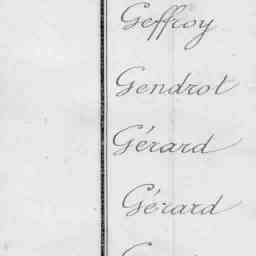 Geffroy
Gendrot
Gérard
Gérard